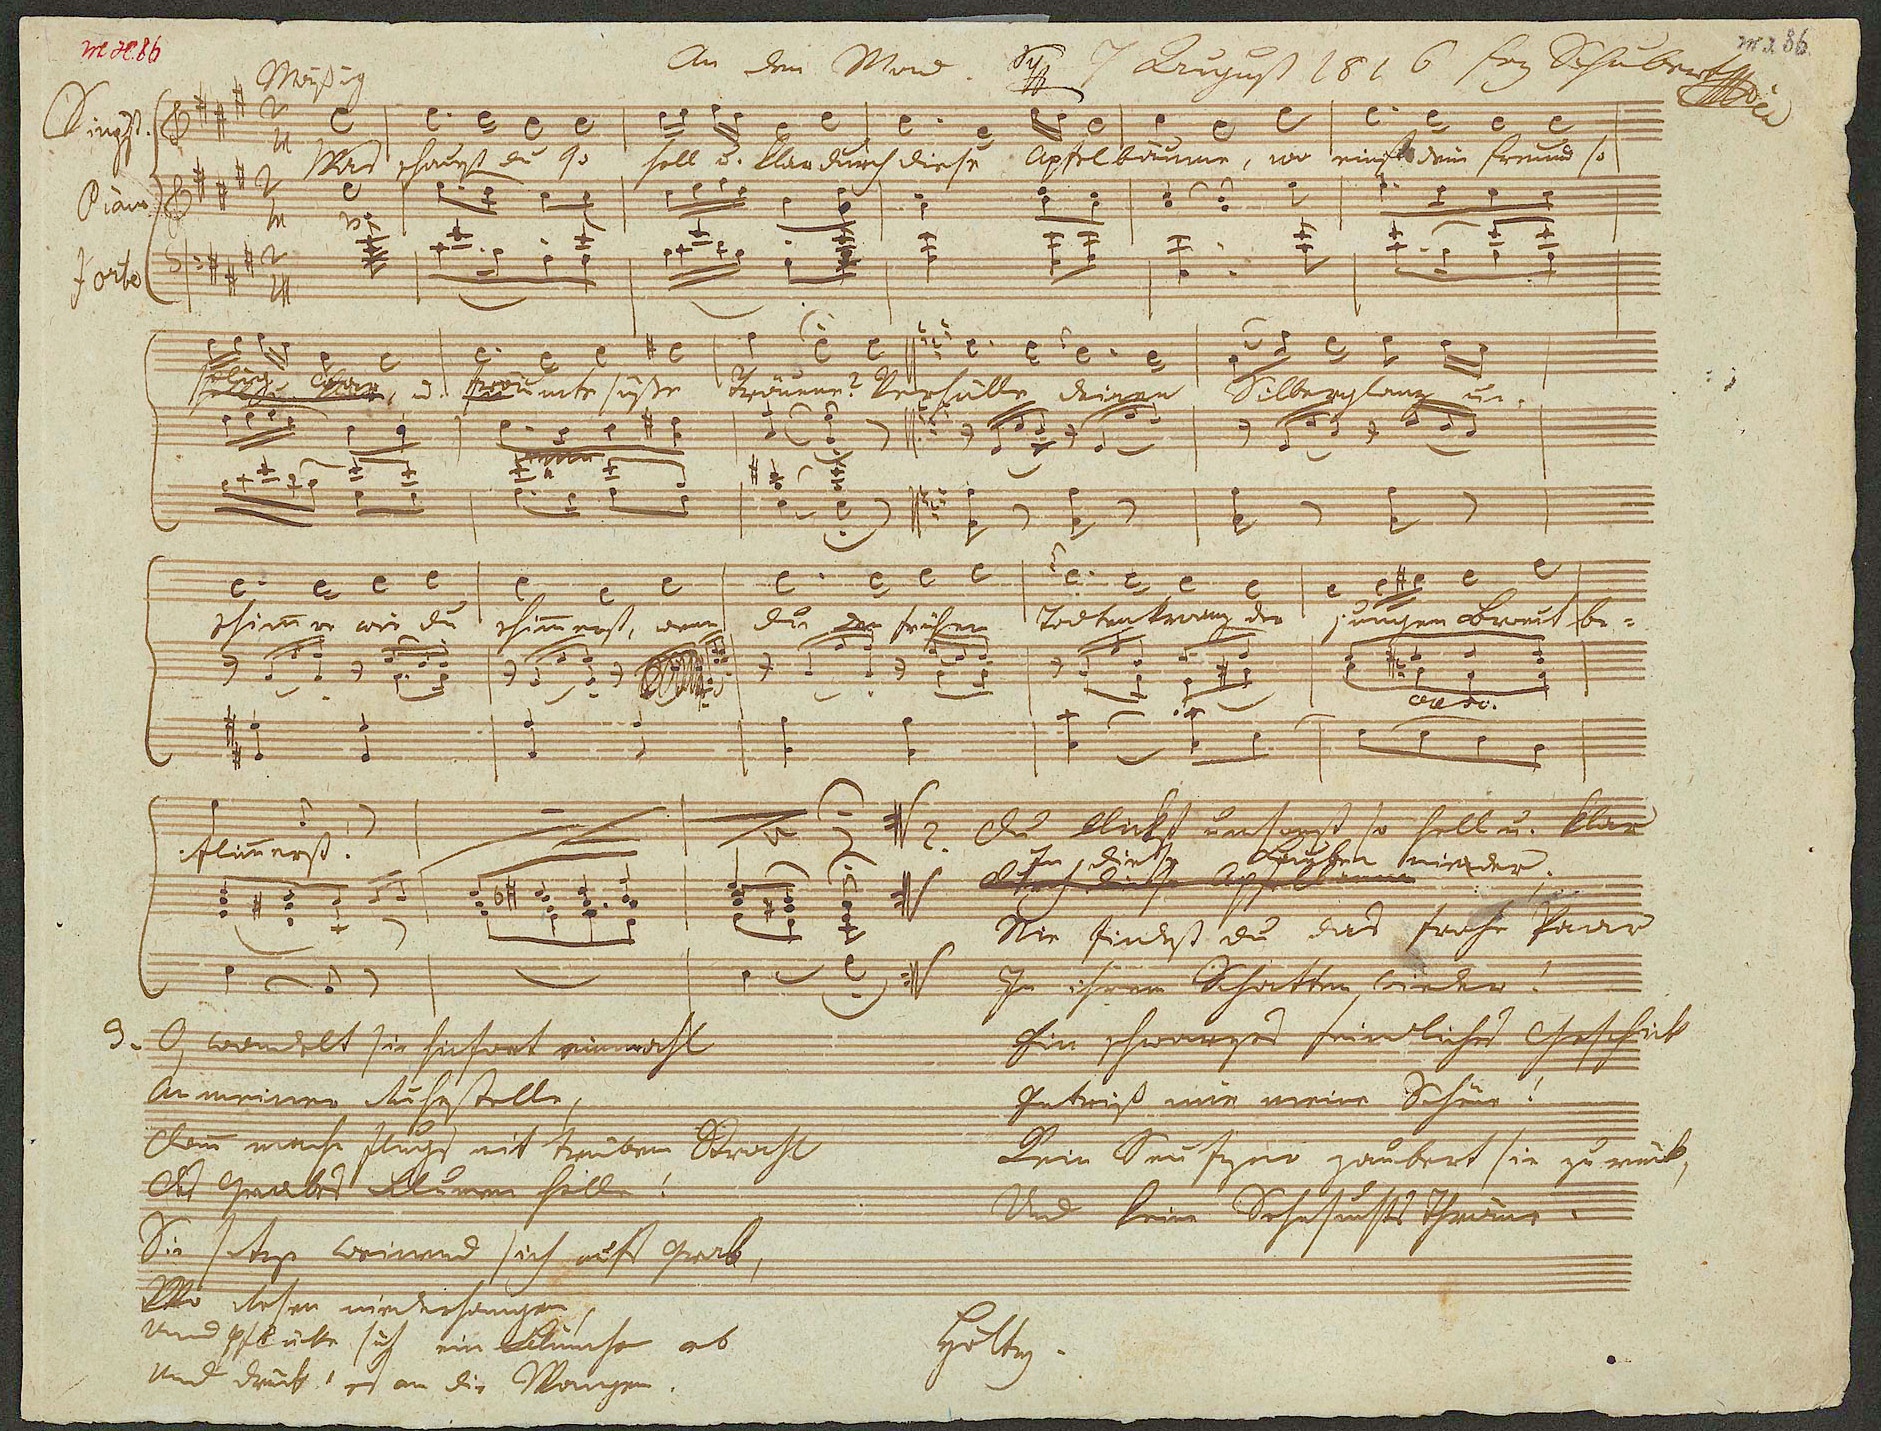 An den Mond. 7 August 1816 Frz Schubert
Mäßig
Singst.
Was schauest du so hell u. klar durch diese Apfelbäume, wo einst dein Freund so
Piano
Forte
selig war, u. träumte süße Träume? Verhülle deinen Silberglanz un.
schimmre wie du schimmerst, wenn du den frühen Todtenkranz der jungen Braut be-
cresc.
flimmerst!
2. Du blickst umsonst so hell u. klar
In diese Lauben nieder,
Nie findest du das frohe Paar
In ihrem Schatten wieder!
Ein schwarzes feindliches Geschick
Entriß mir meine Schöne!
Kein Seufzer zaubert sie zurück,
Und keine Sehnsuchts Thräne.
3. O wandelt sie hinfort einmahl
An meiner Ruhestelle,
Dann mache flugs mit trübem Strahl
Des Grabes Blumen helle!
Sie setze weinend sich aufs Grab,
Wo Rosen niederhangen,
Und pflücke sich ein Blümchen ab
Und drück' es an die Wangen.
Hölty.